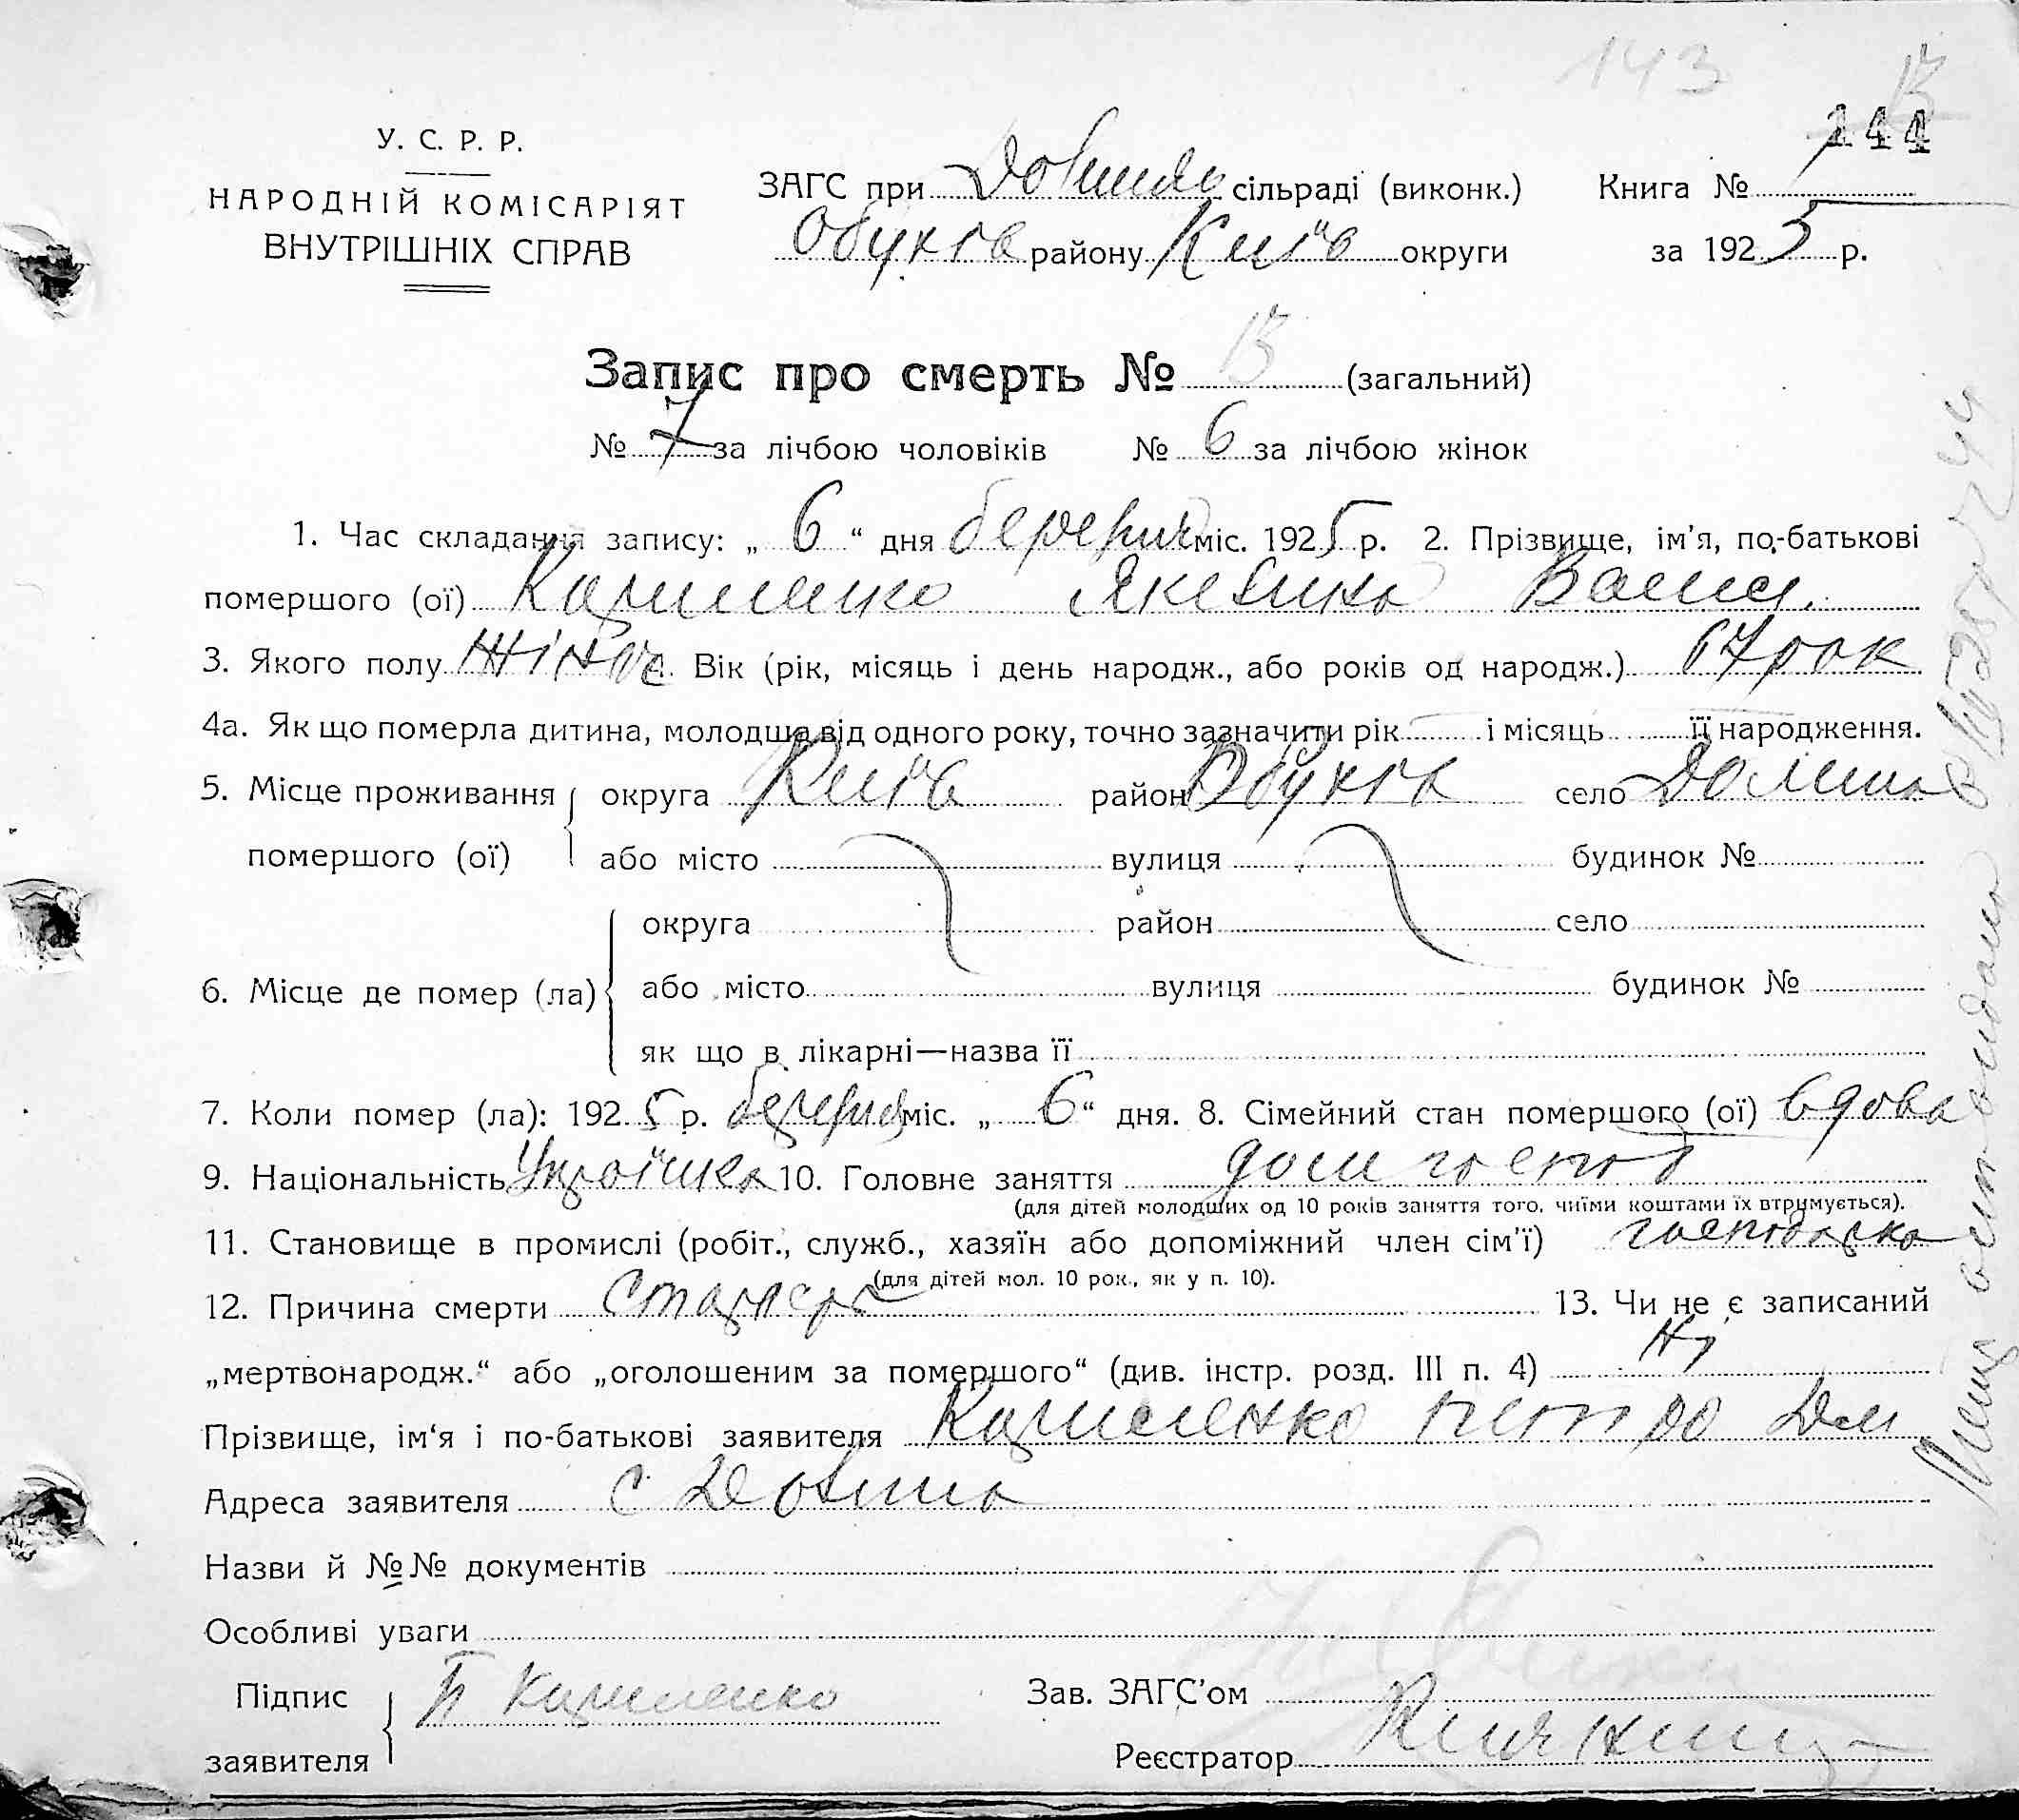 143
13
144
У. С. Р. Р.
НАРОДНІЙ КОМІСАРІЯТ
ВНУТРІШНІХ СПРАВ
ЗАГС при сільраді (виконк.) Книга №
Обухів району Київ округи за 1925 р.
Запис про смерть № 13 (загальний)
№ 7 за лічбою чоловіків № 6 за лічбою жінок
1. Час складання запису: „ 6 “ дня березня міс. 1925 р. 2. Прізвище, ім’я, по-батькові
помершого (ої) Якелина Васил.
3. Якого полу жіноч. Вік (рік, місяць і день народж., або років од народж.) 67 рок
4а. Як що померла дитина, молодша від одного року, точно зазначити рік і місяць її народження.
5. Місце проживання округа Київ район Обухів село Долина
помершого (ої) або місто вулиця будинок №
округа район село
6. Місце де помер (ла) або місто вулиця будинок №
як що в лікарні—назва її
7. Коли помер (ла): 1925 р. березня міс. „ 6 “ дня. 8. Сімейний стан помершого (ої) вдова
9. Національність Українка 10. Головне заняття дом господ
(для дітей молодших од 10 років заняття того, чиїми коштами їх втримується).
11. Становище в промислі (робіт., служб., хазяїн або допоміжний член сім’ї) господарка
(для дітей мол. 10 рок., як у п. 10).
12. Причина смерти 13. Чи не є записаний
„мертвонародж.“ або „оголошеним за помершого“ (див. інстр. розд. III п. 4) Ні
Прізвище, ім‘я і по-батькові заявителя Петро Дм
Адреса заявителя с Долина
Назви й №№ документів
Особливі уваги
Підпис П Зав. ЗАГС’ом
заявителя Реєстратор